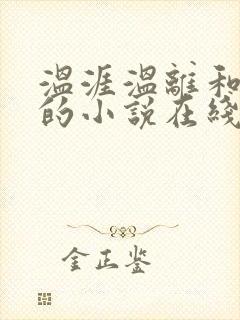 温涯温離和
的小说在綫
金正鉴